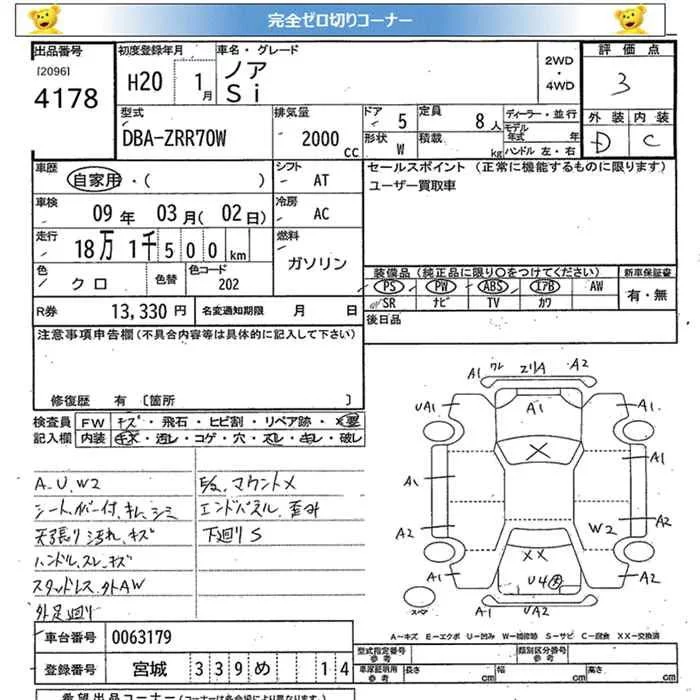 完全ゼロ切りコーナー
出品番号
[2096]
4178
初度登録年月
H20 1月
車名・グレード
ノア
Si
2WD・4WD
評価点
3
外装 内装
D C
型式
DBA-ZRR70W
排気量
2000 cc
ドア 5
定員 8人
形状 W
積載 kg
ディーラー・並行
モデル年式 年
ハンドル 左・右
車歴
自家用・( )
シフト
AT
セールスポイント (正常に機能するものに限ります)
ユーザー買取車
車検
09年 03月(02日)
冷房
AC
走行
18万1千500km
燃料
ガソリン
色
クロ
色替
色コード
202
装備品 (純正品に限り〇をつけてください)
新車保証書
PS PW ABS エアB AW
SR ナビ TV カワ
有・無
R券 13,330円
名変通知期限 月 日
後日品
注意事項申告欄(不具合内容等は具体的に記入して下さい)
修復歴 有 〔箇所 〕
検査員記入欄
FW キズ・飛石・ヒビ割・リペア跡・×要
内装 キズ・汚レ・コゲ・穴・スレ・キレ・破レ
A.U.W2
シート.カバー付.キレ.シミ
天張り汚れ.キズ
ハンドル.スレ.キズ
スタッドレス.外AW
外足廻り
E/g.マウント×
エンドパネル.歪み
下廻りS
A1 ワレ A2
UA1 A1 A1
A1 × A1
A2 W2 A2
×× U4
A1 A2
スペア UA2
A-キズ E-エクボ U-凹み W-補修跡 S-サビ C-腐食 XX-交換済
車台番号 0063179
登録番号 宮城 339 め 14
型式指定番号 参考
類別区分番号 参考
車庫証明用 参考 長さ cm 幅 cm 高さ cm
希望出品コーナー